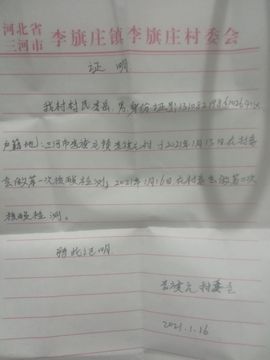 河北省
三河市 李旗庄镇李旗庄村委会
证 明
我村村民 男 身份证号:
户籍地:三河市李旗庄镇李旗庄村 于2021年1月13日在村委
会做第一次核酸检测,2021年1月16日在村委会做第二次
核酸检测。
特此证明.
李旗庄村委会
2021.1.16